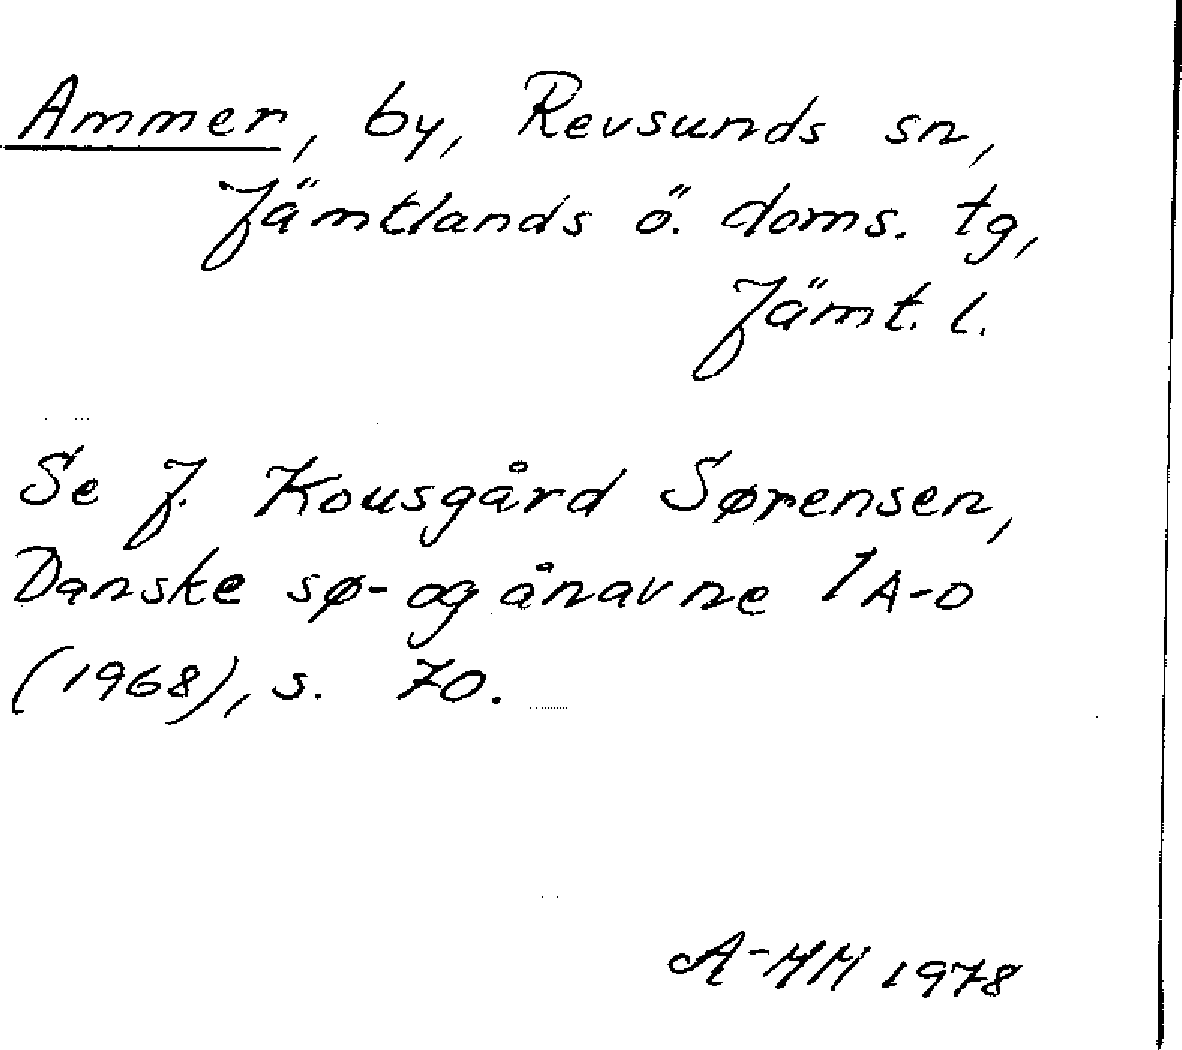 Ammer, by, Revsunds sn,
Jämtlands ö. doms. tg,
Jämt. l.
Se J. Kousgård Sørensen,
Danske sø- og ånavne 1 A-D
(1968), s. 70.
A-MM 1978